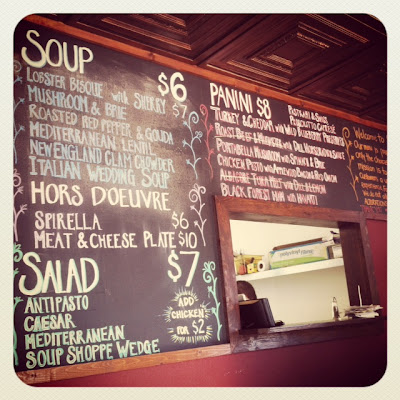 SOUP $6
LOBSTER BISQUE with SHERRY $7
MUSHROOM & BRIE
ROASTED RED PEPPER & GOUDA
MEDITERRANEAN LENTIL
NEW ENGLAND CLAM CHOWDER
ITALIAN WEDDING SOUP
HORS D'OEUVRE
SPIRELLA $6
MEAT & CHEESE PLATE $10
SALAD $7
ANTIPASTO
CAESAR
MEDITERRANEAN
SOUP SHOPPE WEDGE
ADD
CHICKEN
FOR $2
PANINI $8
TURKEY & CHEDDAR with WILD BLUEBERRY PRESERVES
ROAST BEEF & MUENSTER with DILL HORSERADISH SAUCE
PORTABELLA MUSHROOM with SPINACH & BRIE
CHICKEN PESTO with APPLEWOOD BACON & RED ONION
ALBACORE TUNA MELT with
BLACK FOREST HAM with HAVARTI
PASTRAMI & SWISS
PROSCIUTTO CHEESE
Welcome to